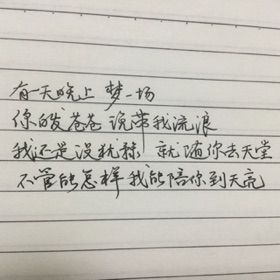 有一天晚上 梦一场
你白发苍苍 说带我流浪
我还是没犹豫 就随你去天堂
不管能怎样 我能陪你到天亮